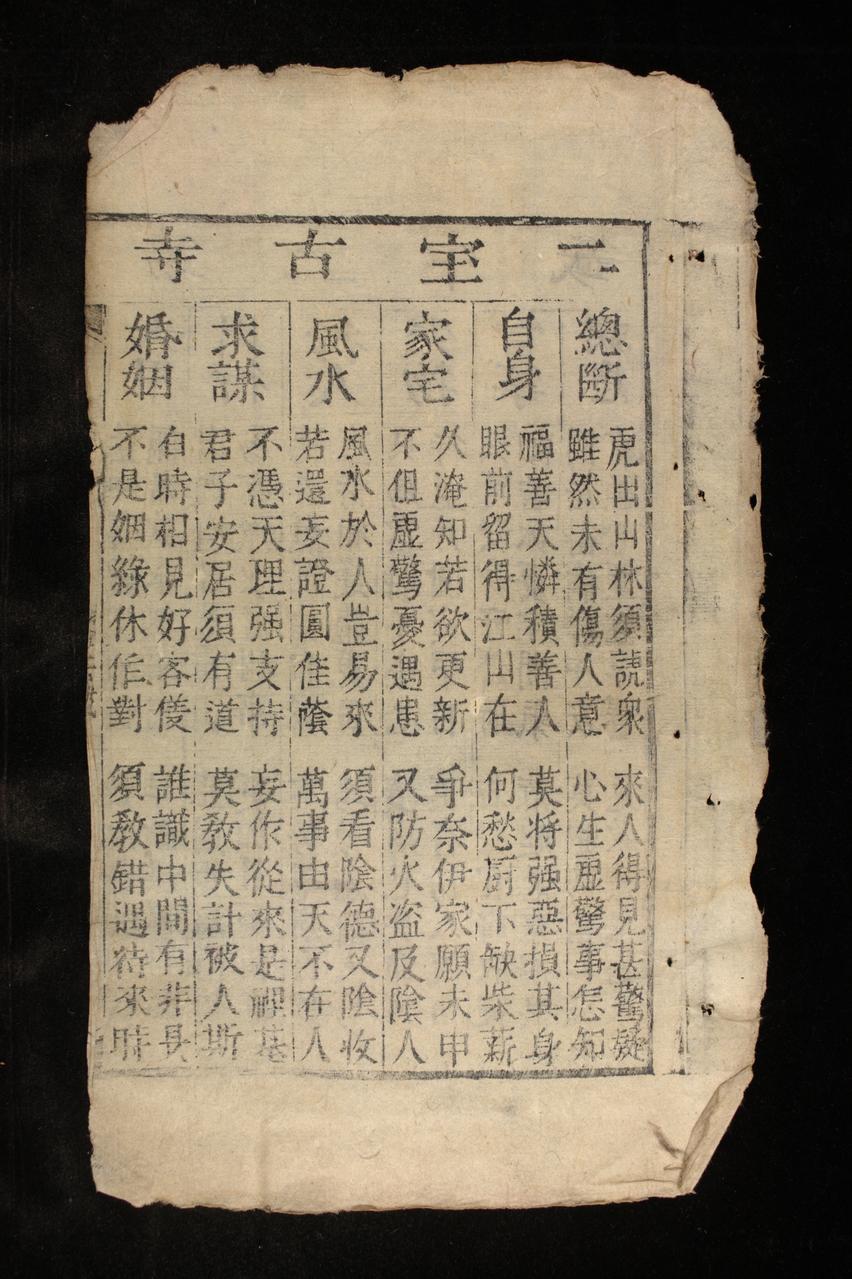 二宝古寺
總斷
虎出山林須諕衆 來人得見甚驚疑
雖然未有傷人意 心生虛驚事怎知
自身
福善天憐積善人 莫将强惡損其身
眼前留得江山在 何愁厨下缺柴薪
家宅
久淹知若欲更新 爭奈伊家願未申
不但虛驚憂遇患 又防火盗及陰人
風水
風水於人豈易來 須看陰德又陰收
若還妄證圓佳蔭 萬事由天不在人
求謀
不憑天理强支持 妄作從來是禍基
君子安居須有道 莫教失計被人斯
婚姻
白時相見好客儀 誰識中間有非長
不是姻緣休作對 須教錯過待來時